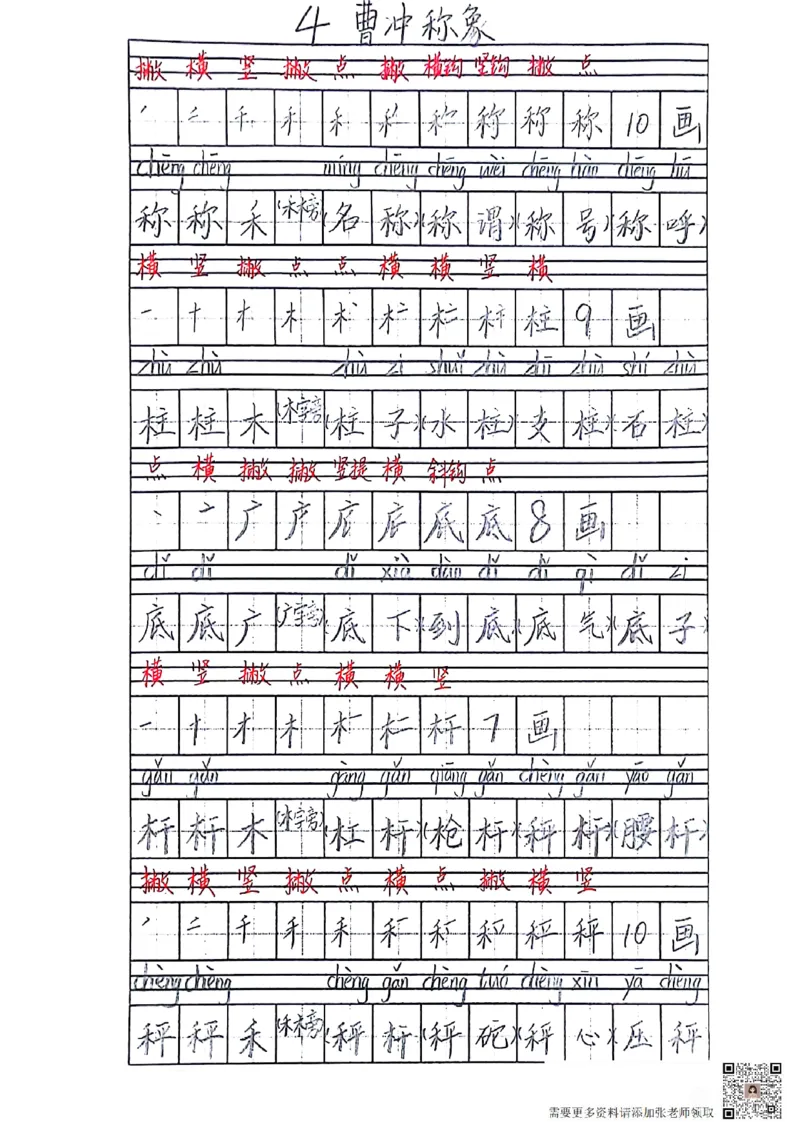 4 曹冲称象
撇 横 竖 撇 点 撇 横钩 竖钩 撇 点
10 画
chēng chēng míng chēng chēng wèi chēng hào chēng hū
称 称 禾 (禾木旁) (名 称) (称 谓) (称 号) (称 呼)
横 竖 撇 点 点 横 横 竖 横
一 十 木 木 柱 9 画
zhù zhù zhù zi shuǐ zhù zhī zhù shí zhù
柱 柱 木 (木字旁) (柱 子) (水 柱) (支 柱) (石 柱)
点 横 撇 撇 竖提 横 斜钩 点
丶 亠 广 底 底 8 画
dǐ dǐ dǐ xià dào dǐ dǐ qì dǐ zi
底 底 广 (广字旁) (底 下) (到 底) (底 气) (底 子)
横 竖 撇 点 横 横 竖
一 十 木 木 杆 7 画
gǎn gǎn gàng gǎn qiāng gǎn chèng gǎn yāo gǎn
杆 杆 木 (木字旁) (杠 杆) (枪 杆) (秤 杆) (腰 杆)
撇 横 竖 撇 点 横 点 撇 横 竖
秤 10 画
chèng chèng chèng gǎn chèng tuó chèng xīn yā chèng
秤 秤 禾 (禾木旁) (秤 杆) (秤 砣) (秤 心) (压 秤
需要更多资料请添加张老师领取